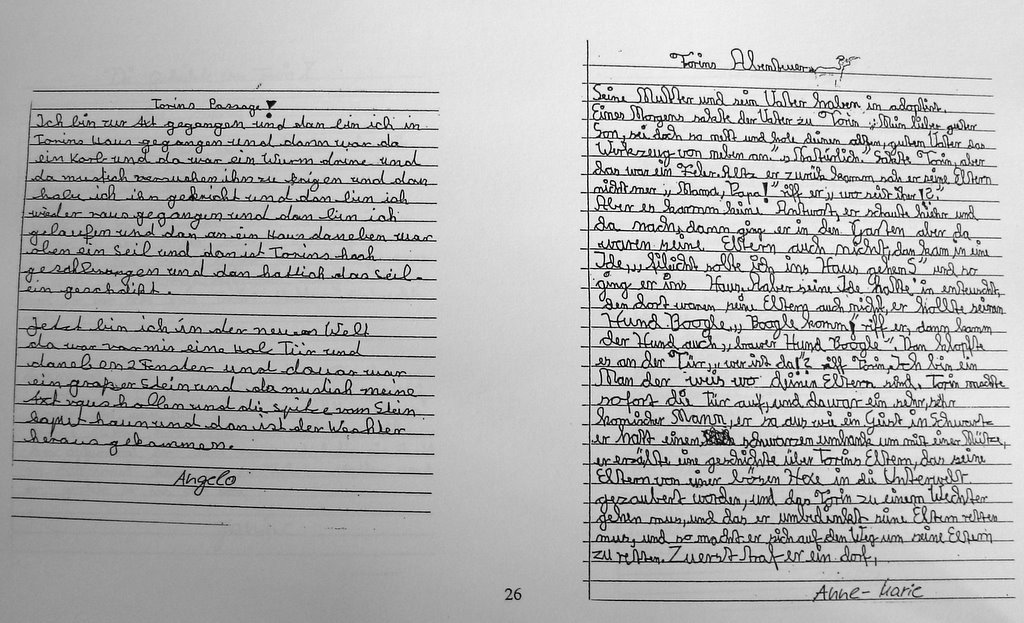 Torins Passage
Ich bin zur Axt gegangen und dan bin ich in
Torins Haus gegangen und dann war da
ein Korb und da war ein Wurm drine und
da mustich versuchen ihn zu krigen und dan
habe ich ihn gekricht und dan bin ich
wieder raus gegangen und dan bin ich
gelaufen und dan an ein Haus daneben war
oben ein Seil und dan ist Torins hoch
geschwungen und dan hattich das Seil
ein geschtikt.
Jetzt bin ich in der neuen Welt
da war vor mir eine Holz Tür und
daneben 2 Fenster und davar war
ein großer Stein und da mustich meine
Axt raus hollen und die spitze vom Stein
kaput haun und dan ist der Wachter
heraus gekommen.
Angelo
Torins Abenteuer
Seine Mutter und sein Vater haben in adoptirt.
Eines Morgens sakte der Vater zu Torin „Mein liber guter
Son, sei doch so nett und hole deinem alten, guten Vater das
Werkzeug von neben an". „Natürlich. Sakte Torin, aber
das war ein Feler. Als er zurük kamm sah er seine Eltern
nicht mer „Mama, Papa!" riff er „wo seit ihr!?"
Aber es kamm keine Antwort, er schaute hiehr und
da nach, dann ging er in den Garten aber da
waren seine Eltern auch nicht, dan kam in eine
Ide, „filicht sollte ich ins Haus gehen?" und so
ging er ins Haus. Aber seine Ide hatte in enteuscht,
den dort waren seine Eltern auch nicht, er hollte seinen
Hund Boogle, „Boogle komm!" riff er, dann kamm
der Hund auch „braver Hund Boogle". Dan klopfte
es an der Tür, „wer ist da!"? riff Torin, Ich bin ein
Man der weis wo deinen Eltern sind. Torin machte
sofort die Tür auf, und da war ein sehr, sehr
komischer Mann, er sa aus wie ein Geist in Schwartz
er hatt einen schwarzen umhank um mit einer Mütze,
er erzählte eine geschichte über Torins Eltern, das seine
Eltern von einer bösen Hexe in die Unterwelt
gezaubert worden, und das Torin zu einem Wechter
gehen mus, und das er umbedinkt seine Eltern retten
mus, und so macht er sich auf den Weg um seine Eltern
zu retten. Zuerst traf er ein dorf,
Anne-Marie
26